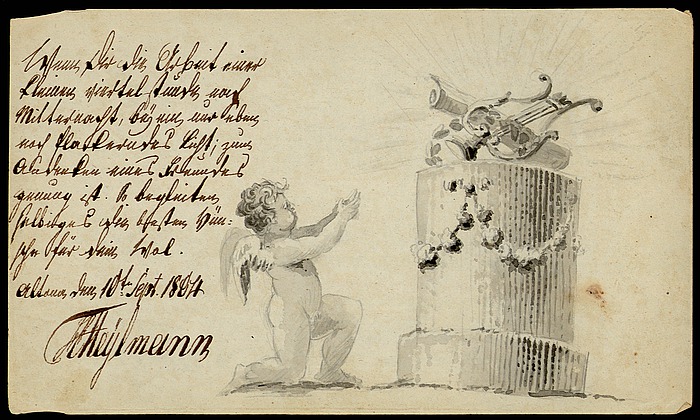 Wenn Dir die Arbeit einer
kleinen viertel stunde nach
Mitternacht, beÿ ein nur eben
noch flackerndes Licht; zum
Andenken eines Freundes
genung ist. So begleiten
selbiges die besten Wün-
sche für dein Wol.
Altona den 10t Sept. 1804